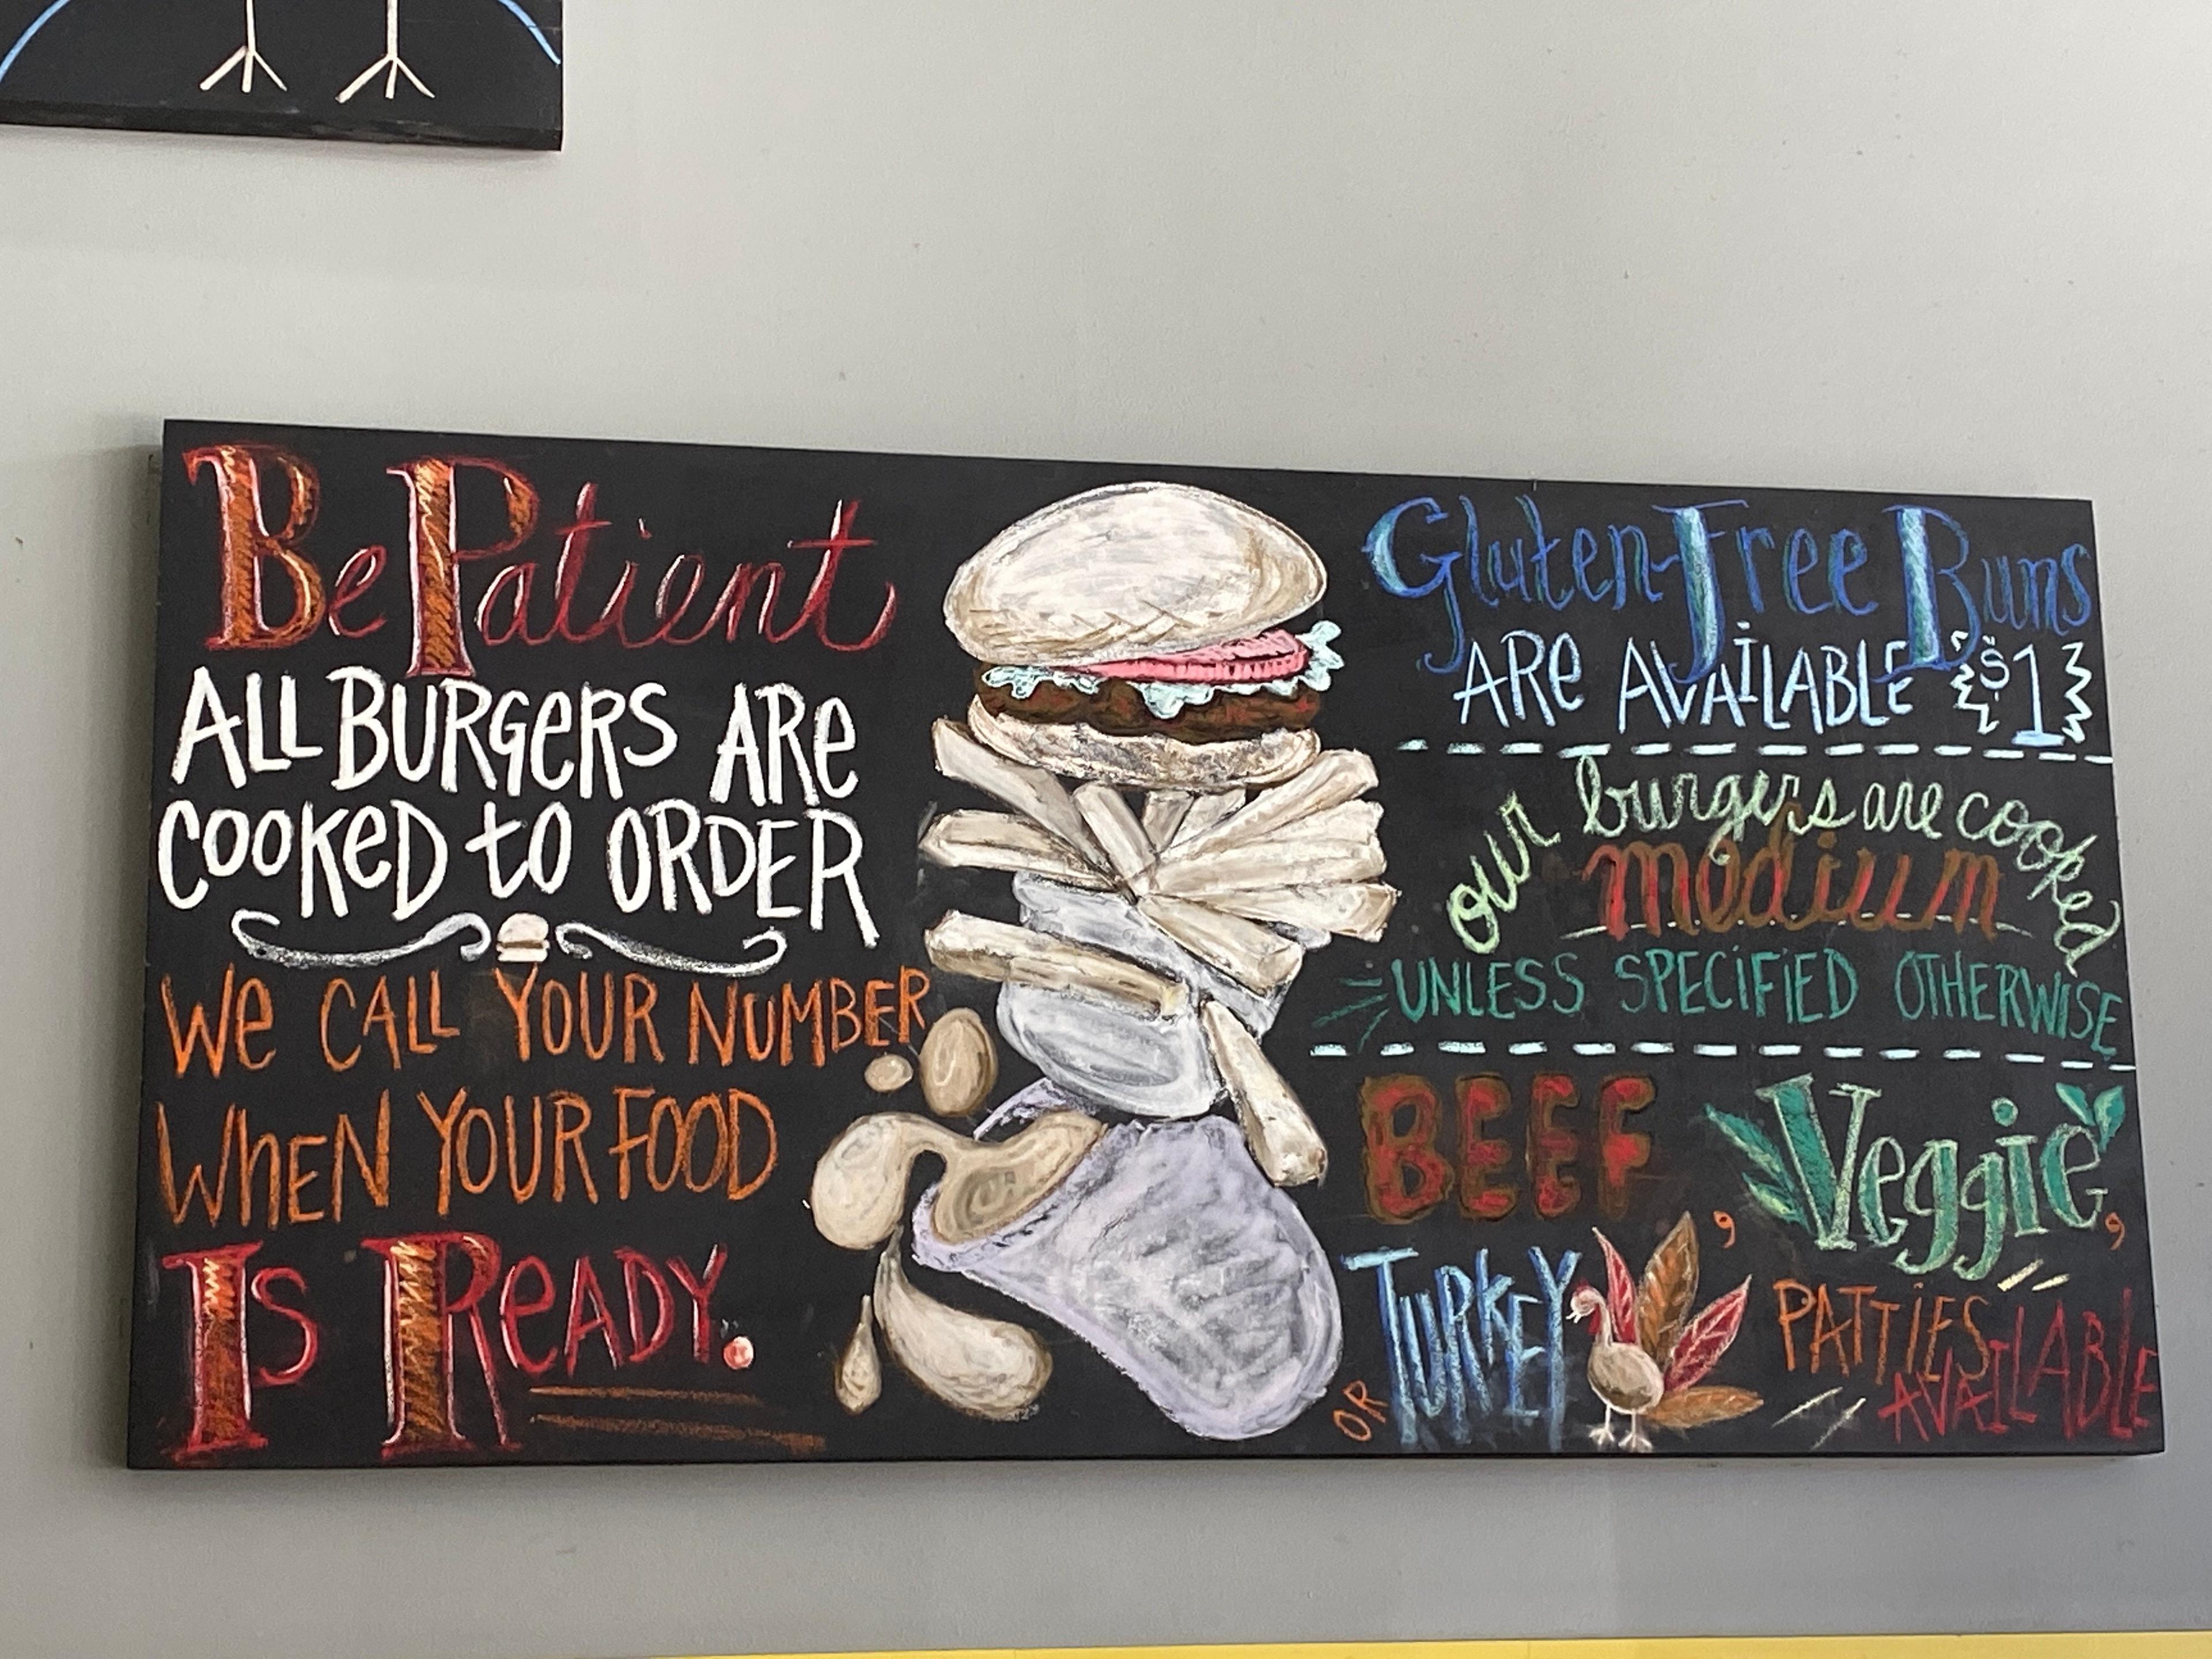 Be Patient
ALL BURGERS ARE
COOKED to ORDER
We CALL YOUR NUMBER
WhEN YOUR FOOD
IS READY.
Gluten-Free Buns
ARE AVAILABLE $1
our burgers are cooked
medium
UNLESS SPECIFIED OTHERWISE
BEEF, Veggie,
OR TURKEY PATTIES
AVAILABLE